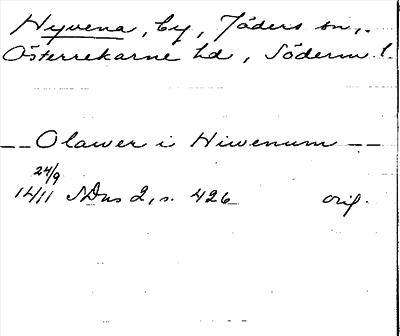 Hyvena, by, Jäders sn,
Österrekarne hd, Söderm. l.
-- Olawer i Hiwenum --
24/9
1411 SDns 2, s. 426 orig.